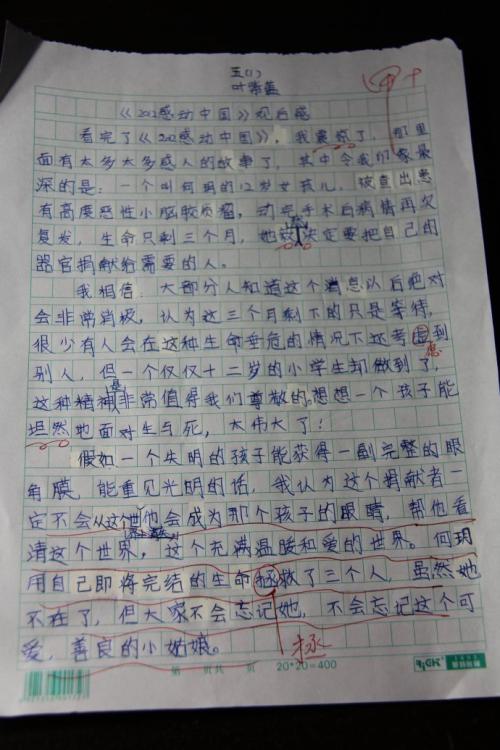 五(1)
叶紫薇
《2012感动中国》观后感
看完了《2012感动中国》，我震惊了，那里
面有太多太多感人的故事了，其中令我印象最
深的是：一个叫何玥的12岁女孩儿，被查出患
有高度恶性小脑胶质瘤，动完手术后病情再次
复发，生命只剩三个月，她决定要把自己的
器官捐献给需要的人。
我相信：大部分人知道这个消息以后绝对
会非常消极，认为这三个月剩下的只是等待，
很少有人会在这种生命垂危的情况下还考虑到
别人，但一个仅仅十二岁的小学生却做到了，
这种精神是非常值得我们尊敬的。想想一个孩子能
坦然地面对生与死，太伟大了！
假如一个失明的孩子能获得一副完整的眼
角膜，能重见光明的话，我认为这个捐献者一
定不会从这个世他会成为那个孩子的眼睛，帮他看
清这个世界，这个充满温暖和爱的世界。何玥
用自己即将完结的生命拯救了三个人，虽然她
不在了，但大家不会忘记她，不会忘记这个可
爱，善良的小姑娘。
拯
第 页共 页 20*20=400